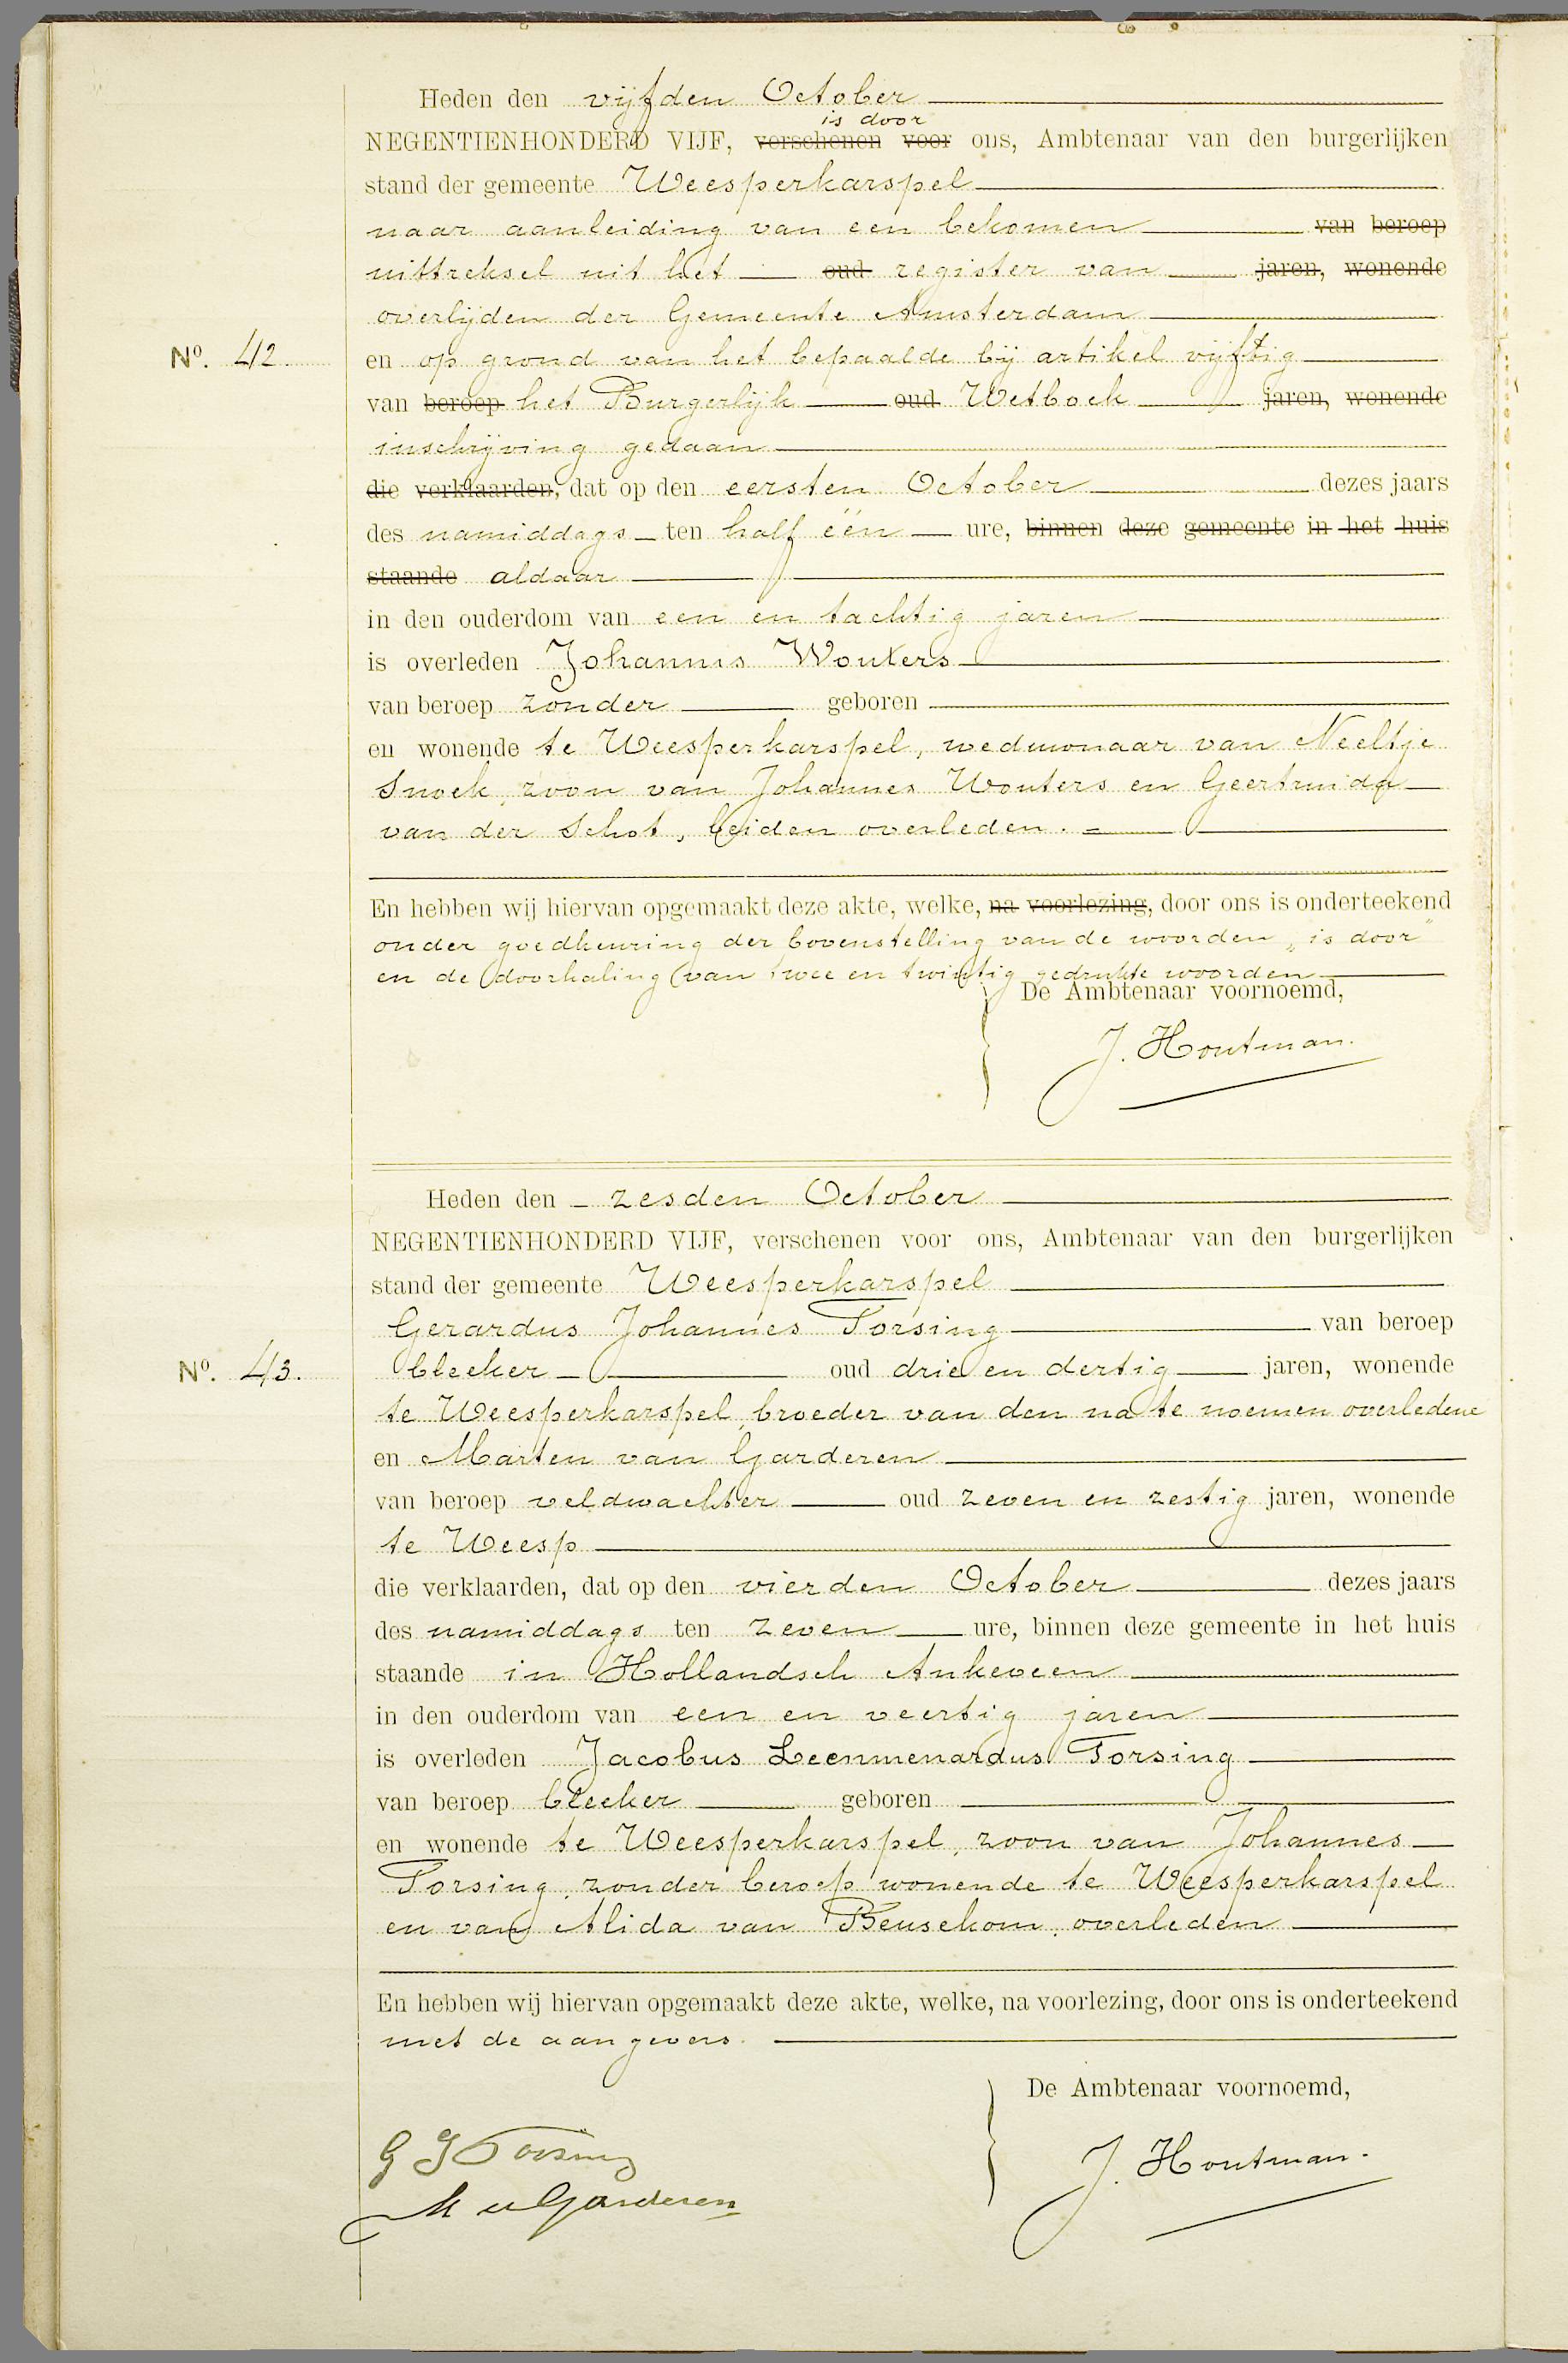 Heden den vijfden October
is door
NEGENTIENHONDERD VIJF, verschenen voor ons, Ambtenaar van den burgerlijken
stand der gemeente Weesperkarspel
naar aanleiding van een bekomen van beroep
uittreksel uit het oud register van jaren, wonende
overlijden der Gemeente Amsterdam
No. 42. en op grond van het bepaalde bij artikel vijftig
van beroep het Burgerlijk oud Wetboek jaren, wonende
inschrijving gedaan
die verklaarden, dat op den eersten October dezes jaars
des namiddags ten half één ure, binnen deze gemeente in het huis
staande aldaar
in den ouderdom van een en tachtig jaren
is overleden Johannis Wouters
van beroep zonder geboren
en wonende te Weesperkarspel, weduwnaar van Neeltje
Snoek, zoon van Johannes Wouters en Geertruida
van der Schot, beiden overleden. =
En hebben wij hiervan opgemaakt deze akte, welke, na voorlezing, door ons is onderteekend
onder goedkeuring der bovenstelling van de woorden „is door”
en de doorhaling van twee en twintig gedrukte woorden
De Ambtenaar voornoemd,
J. Houtman.
Heden den zesden October
NEGENTIENHONDERD VIJF, verschenen voor ons, Ambtenaar van den burgerlijken
stand der gemeente Weesperkarspel
Gerardus Johannes Torsing van beroep
No. 43. bleeker oud drie en dertig jaren, wonende
te Weesperkarspel, broeder van den na te noemen overledene
en Marten van Garderen
van beroep veldwachter oud zeven en zestig jaren, wonende
te Weesp
die verklaarden, dat op den vierden October dezes jaars
des namiddags ten zeven ure, binnen deze gemeente in het huis
staande in Hollandsch Ankeveen
in den ouderdom van een en veertig jaren
is overleden Jacobus Leenmenardus Torsing
van beroep bleeker geboren
en wonende te Weesperkarspel, zoon van Johannes
Torsing, zonder beroep wonende te Weesperkarspel
en van Alida van Beusekom, overleden
En hebben wij hiervan opgemaakt deze akte, welke, na voorlezing, door ons is onderteekend
met de aangevers.
De Ambtenaar voornoemd,
G J Torsing
J. Houtman.
M v Garderen